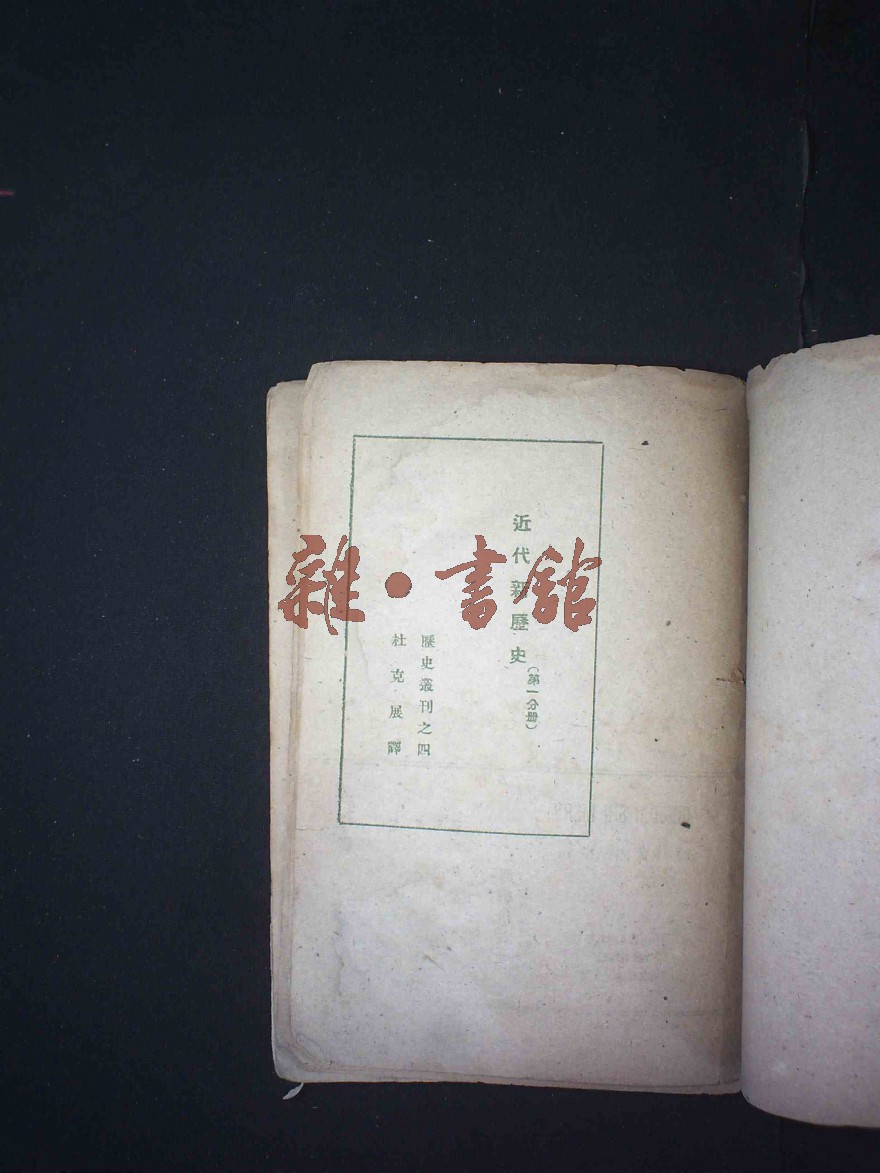 近代新歷史
(第一分册)
歷史叢刊之四
杜克展譯
雜·書館